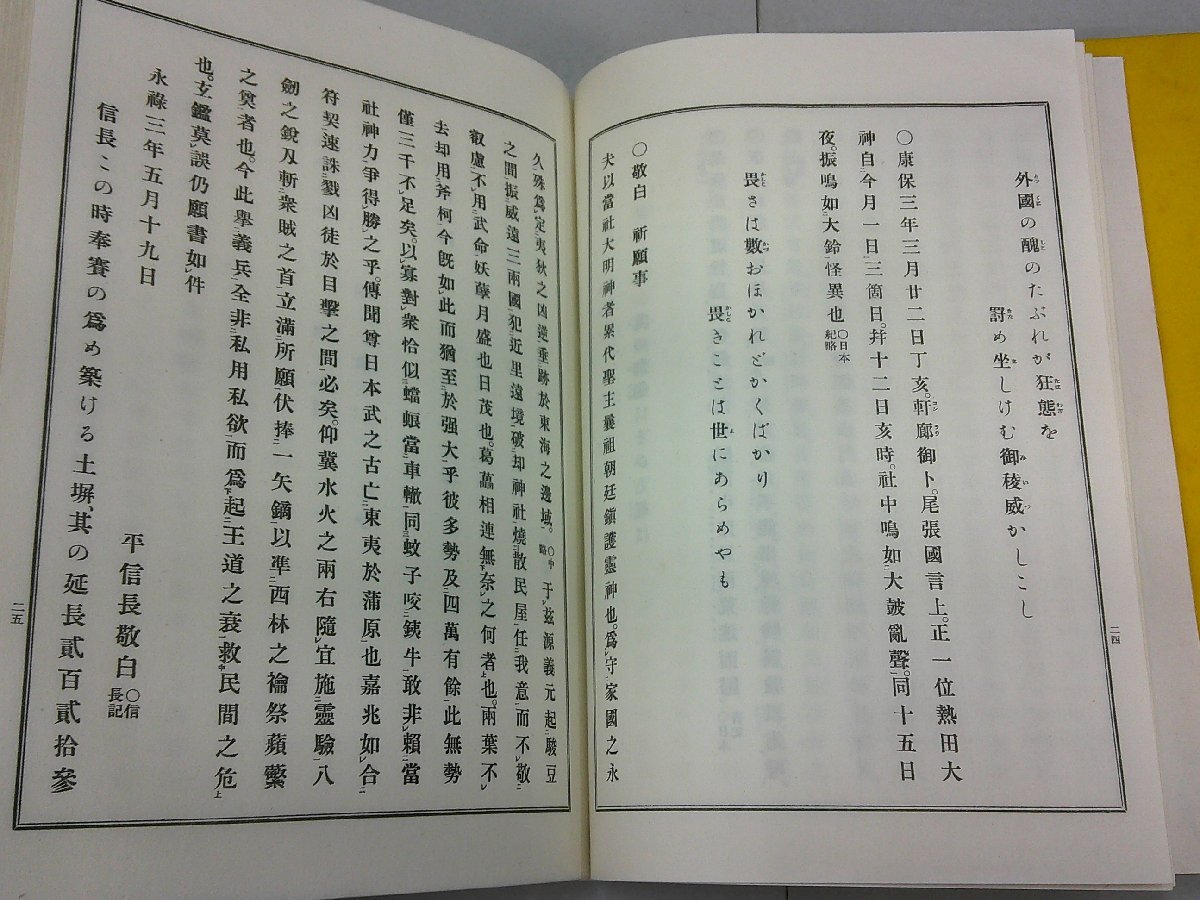 外國の醜のたぶれが狂態を
罸め坐しけむ御稜威かしこし
〇康保三年三月廿二日丁亥。軒廊御卜。尾張國言上。正一位熱田大
神自今月一日三箇日。幷十二日亥時。社中鳴如大皷亂聲。同十五日
夜。振鳴如大鈴怪異也〇日本紀略
畏さは數おほかれどかくばかり
畏きことは世にあらめやも
〇敬白 祈願事
夫以當社大明神者累代聖主曩祖朝廷鎭護靈神也。爲守家國之永
二四
久殊爲定夷狄之凶逆垂跡於東海之邊域。〇中略于玆源義元起駿豆
之間振威遠三兩國犯近里遠境破却神社燒散民屋任我意而不敬
叡慮不用武命妖孽月盛也日茂也。葛藟相連無奈之何者也。兩葉不
去却用斧柯今旣如此而猶至於强大乎彼多勢及四萬有餘此無勢
僅三千不足矣。以寡對衆恰似蟷蜋當車轍同蚊子咬鐵牛敢非賴當
社神力爭得勝之乎。傳聞尊日本武之古亡東夷於蒲原也嘉兆如合
符契速誅戮凶徒於目擊之間必矣。仰冀水火之兩右隨宜施靈驗八
劒之銳刄斬衆賊之首立滿所願伏捧一矢鏑以準西林之禴祭蘋蘩
之奠者也。今此擧義兵全非私用私欲而爲起王道之衰救民間之危
也。玄鑑莫誤仍願書如件
永祿三年五月十九日
平信長敬白〇信長記
信長この時奉賽の爲め築ける土塀、其の延長貳百貳拾參
二五